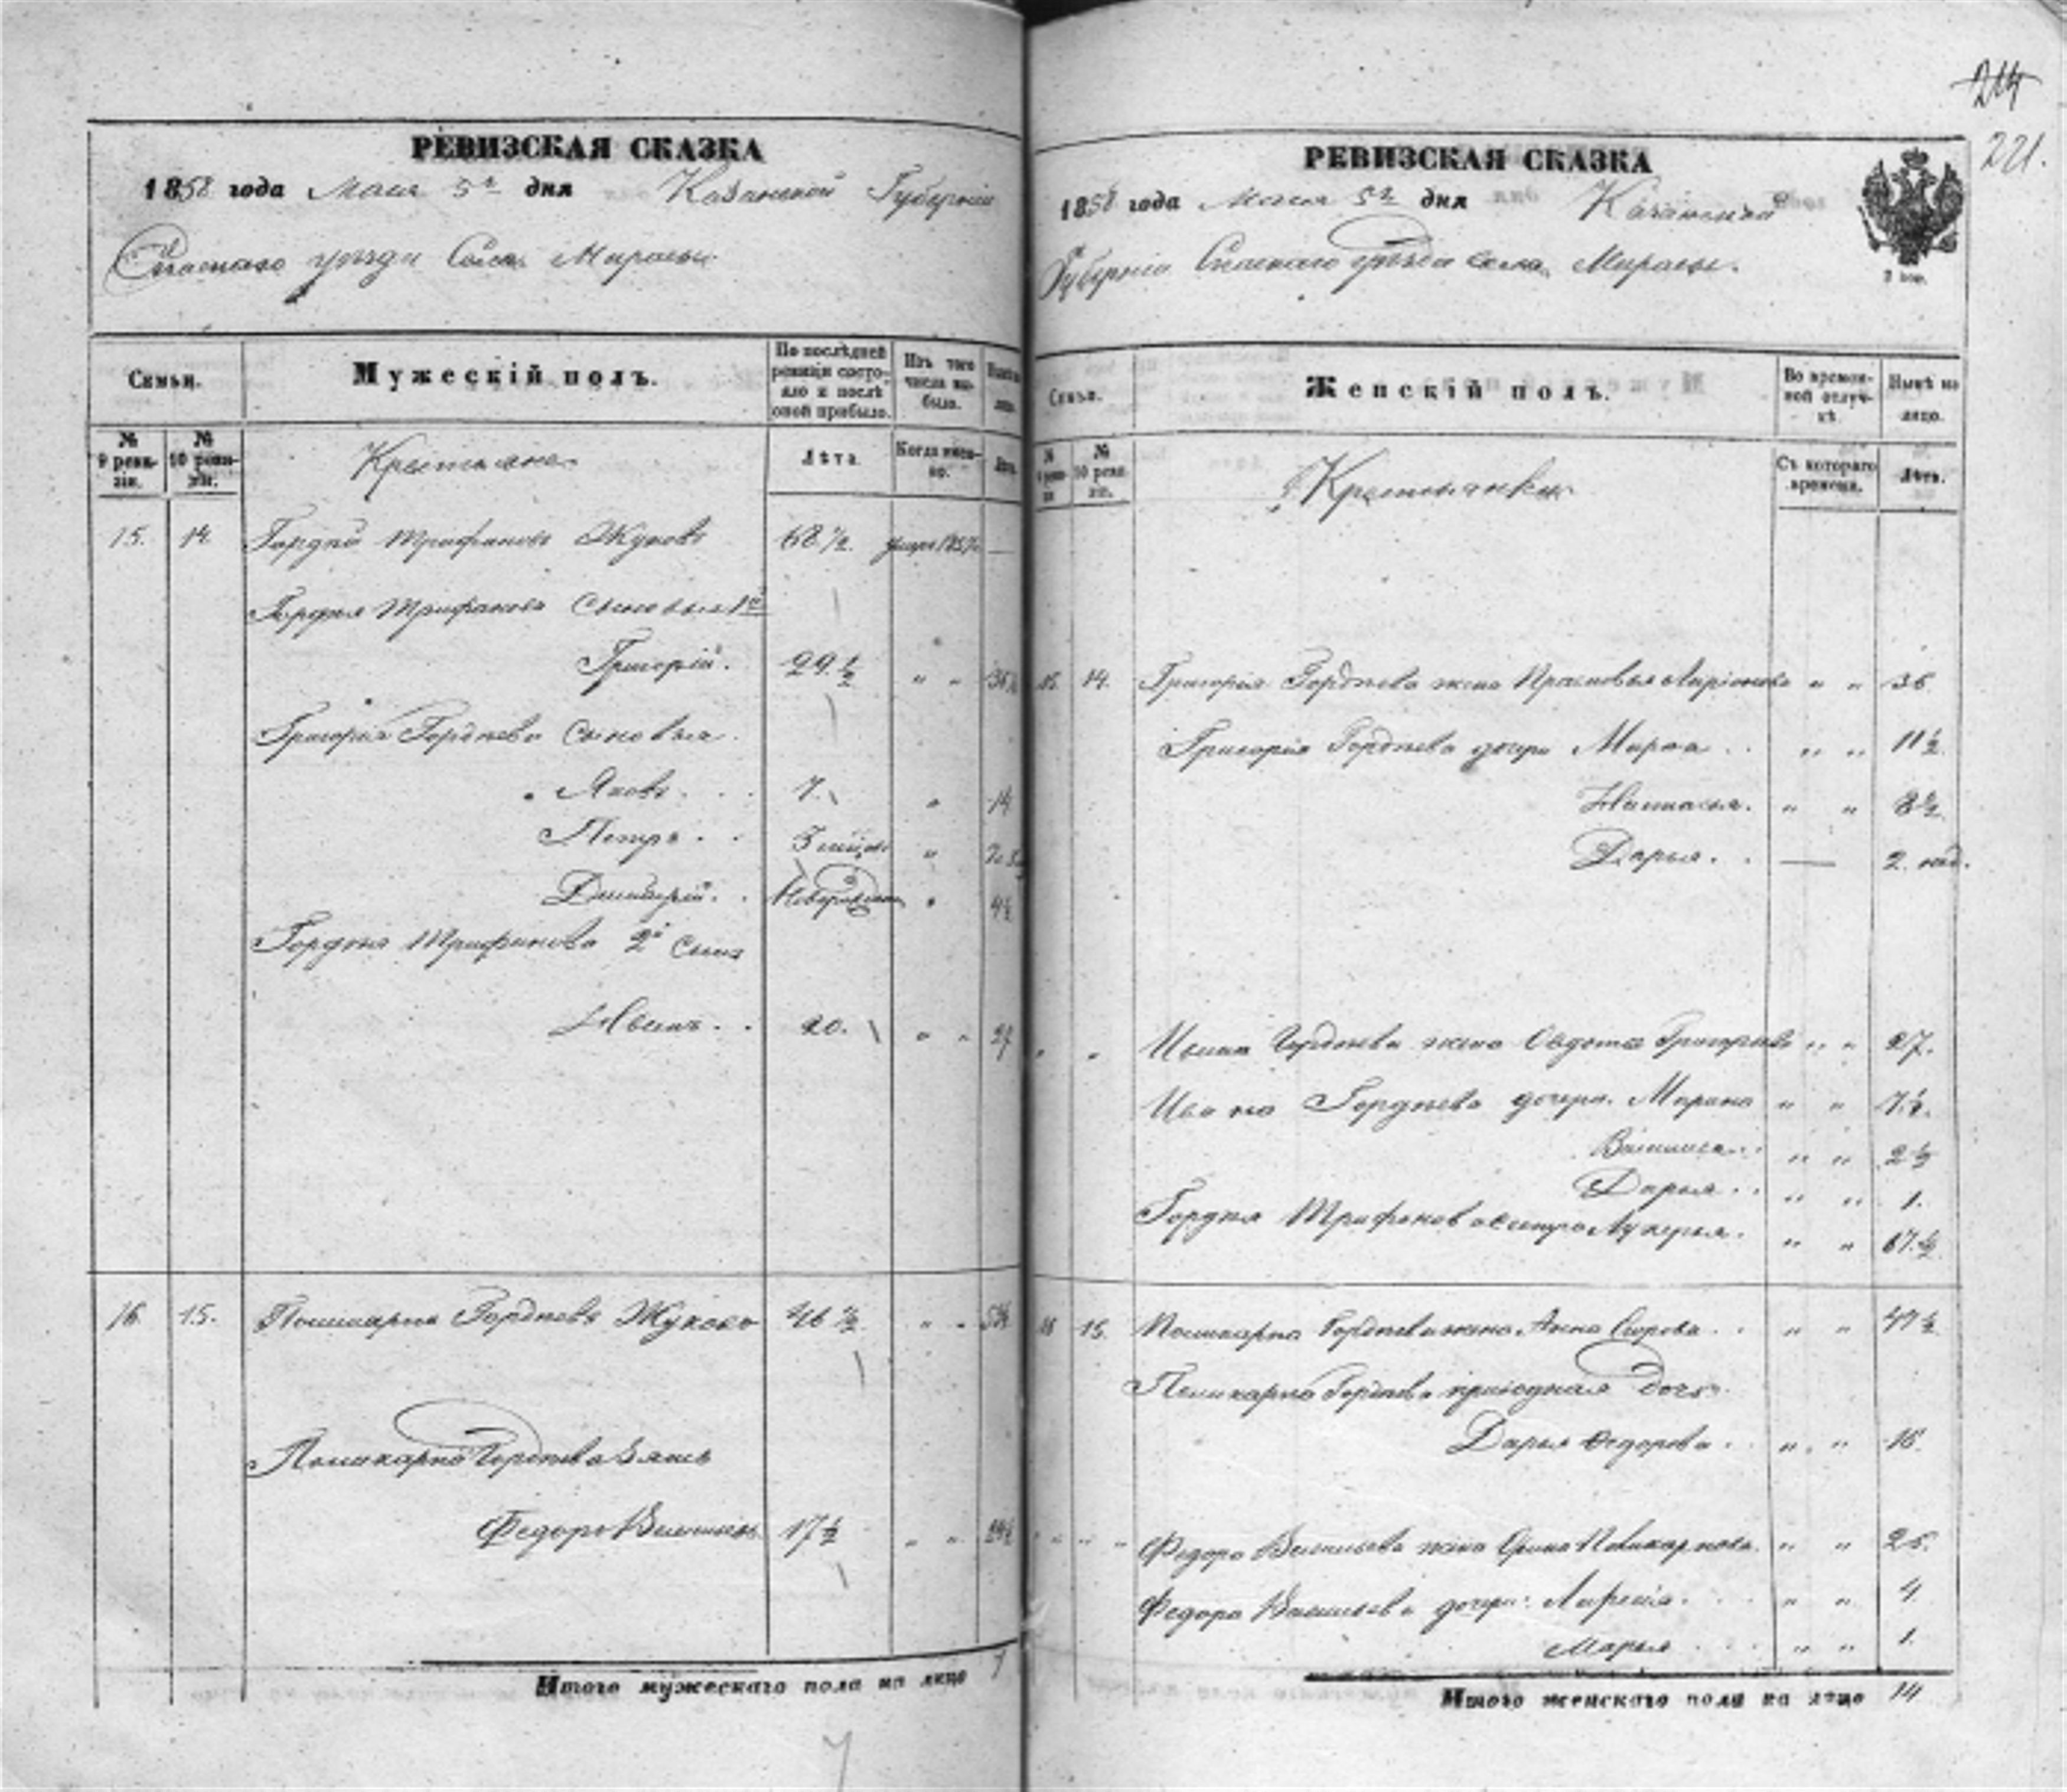 РЕВИЗСКАЯ СКАЗКА
1858 года Мая 5го дня Казанской Губерніи
Спаскаго уѣзда Села Мурасы
Семьи.
Мужескій полъ.
По послѣдней ревизіи состояло и послѣ оной прибыло.
Изъ того числа выбыло.
№ 9 ревизіи.
№ 10 ревизіи.
Крестьяне
Лѣта.
Когда именно.
Лѣта.
15. 14 Гордѣй Трифановъ Жуковъ 68 1/2 умеръ 185 —
Гордѣя Трифанова сыновья 1й
Григорій. 29 1/2 " "
Григорія Гордѣева сыновья
Яковъ . . 7. " 14
Петръ . . 3 "
Дмитрій . . Новорожден "
Гордѣя Трифанова 2й сынъ
Иванъ . . 20. " " 27
16. 15. Поликарпъ Гордѣевъ Жуковъ 46 1/2 " "
Поликарпа Гордѣева Зять
Федоръ Васильевъ 17 1/2 " " 24 1/2
Итого мужескаго пола на лицо 7
7
214
221.
РЕВИЗСКАЯ СКАЗКА
1858 года Мая 5го дня Казанской
Губерніи Спаскаго уѣзда села Мурасы.
Семьи.
Женскій полъ.
Во временной отлучкѣ.
Нынѣ на лицо.
№ 10 ревизіи.
Крестьянки
Съ котораго времени.
Лѣта.
15. 14. Григорія Гордѣева жена Прасковья Ларіонова " " 36.
Григорія Гордѣева дочери Марѳа . . " " 11 1/2
Настасья. " " 8 1/2
Дарья. . — 2. нед.
" " Ивана Гордѣева жена Овдотья Григорьева " " 27.
Ивана Гордѣева дочери. Марина " " 7 1/2.
Василиса . . " " 2 1/2
Дарья . . " " 1.
Гордѣя Трифанова сестра Лукерья. " " 67 1/2
16 15. Поликарпа Гордѣева жена Анна Егорова . . " " 47 1/2
Поликарпа Гордѣева приводная дочь
Дарья Федорова . . " " 16.
" " " Федора Васильева жена Орина Поликарпова. " " 25.
Федора Васильева дочери: " " 4
Марья . . . " " 1.
Итого женскаго пола на лицо 14